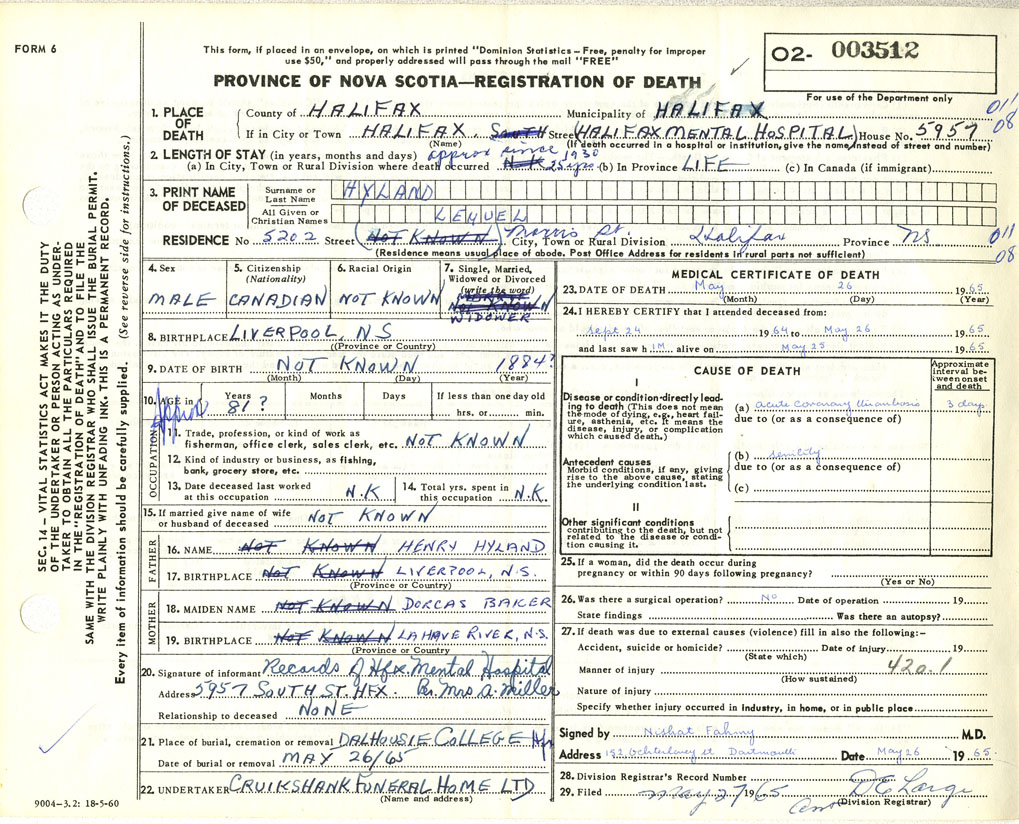 FORM 6
This form, if placed in an envelope, on which is printed "Dominion Statistics – Free, penalty for improper
use $50," and properly addressed will pass through the mail "FREE"
PROVINCE OF NOVA SCOTIA—REGISTRATION OF DEATH
O2- 003512
For use of the Department only
SEC. 14 – VITAL STATISTICS ACT MAKES IT THE DUTY
OF THE UNDERTAKER OR PERSON ACTING AS UNDER-
TAKER TO OBTAIN ALL THE PARTICULARS REQUIRED
IN THE "REGISTRATION OF DEATH" AND TO FILE THE
SAME WITH THE DIVISION REGISTRAR WHO SHALL ISSUE THE BURIAL PERMIT.
WRITE PLAINLY WITH UNFADING INK. THIS IS A PERMANENT RECORD.
Every item of information should be carefully supplied. (See reverse side for instructions.)
1. PLACE OF DEATH
County of HALIFAX Municipality of HALIFAX 011
08
If in City or Town HALIFAX, South Street (HALIFAX MENTAL HOSPITAL) House No. 5957
(Name) (If death occurred in a hospital or institution, give the name instead of street and number)
2. LENGTH OF STAY (in years, months and days) approx since 1930
(a) In City, Town or Rural Division where death occurred N.K 25 yrs (b) In Province LIFE (c) In Canada (if immigrant)
3. PRINT NAME OF DECEASED
Surname or Last Name HYLAND
All Given or Christian Names LEMUEL
RESIDENCE No 5202 Street (NOT KNOWN) Morris St. City, Town or Rural Division Halifax Province NS 011
08
(Residence means usual place of abode. Post Office Address for residents in rural parts not sufficient)
4. Sex
MALE
5. Citizenship
(Nationality)
CANADIAN
6. Racial Origin
NOT KNOWN
7. Single, Married,
Widowed or Divorced
(write the word)
NOT KNOWN
WIDOWER
8. BIRTHPLACE LIVERPOOL, N.S
(Province or Country)
9. DATE OF BIRTH NOT KNOWN 1884?
(Month) (Day) (Year)
10. AGE in Approx
Years 81 ?
Months
Days
If less than one day old
hrs. or min.
OCCUPATION
11. Trade, profession, or kind of work as
fisherman, office clerk, sales clerk, etc. NOT KNOWN
12. Kind of industry or business, as fishing,
bank, grocery store, etc.
13. Date deceased last worked
at this occupation N.K
14. Total yrs. spent in
this occupation N.K.
15. If married give name of wife
or husband of deceased NOT KNOWN
FATHER
16. NAME NOT KNOWN HENRY HYLAND
17. BIRTHPLACE NOT KNOWN LIVERPOOL, N.S.
(Province or Country)
MOTHER
18. MAIDEN NAME NOT KNOWN DORCAS BAKER
19. BIRTHPLACE NOT KNOWN LAHAVE RIVER, N.S.
(Province or Country)
20. Signature of informant Records of Hfx. Mental Hospital
Address 5957 SOUTH ST. HFX. Per Mrs A. Miller
Relationship to deceased NONE
21. Place of burial, cremation or removal DALHOUSIE COLLEGE Hfx
Date of burial or removal MAY 26/65
22. UNDERTAKER CRUIKSHANK FUNERAL HOME LTD
(Name and address)
9004–3.2: 18-5-60
MEDICAL CERTIFICATE OF DEATH
23. DATE OF DEATH May 26 1965
(Month) (Day) (Year)
24. I HEREBY CERTIFY that I attended deceased from:
Sept 24 1964 to May 26 1965
and last saw h IM alive on May 25 1965
CAUSE OF DEATH
Approximate
interval be-
tween onset
and death
I
Disease or condition directly lead-
ing to death (This does not mean
the mode of dying, e.g., heart failure,
asthenia, etc. It means the
disease, injury, or complication
which caused death.)
(a) acute coronary thrombosis 3 days
due to (or as a consequence of)
Antecedent causes
Morbid conditions, if any, giving
rise to the above cause, stating
the underlying condition last.
(b) senility
due to (or as a consequence of)
(c)
II
Other significant conditions
contributing to the death, but not
related to the disease or condi-
tion causing it.
25. If a woman, did the death occur during
pregnancy or within 90 days following pregnancy?
(Yes or No)
26. Was there a surgical operation? No Date of operation 19
State findings Was there an autopsy?
27. If death was due to external causes (violence) fill in also the following:–
Accident, suicide or homicide? Date of injury 19
(State which)
Manner of injury 420.1
(How sustained)
Nature of injury
Specify whether injury occurred in industry, in home, or in public place
Signed by Nishat Fahmy M.D.
Address 152 Ochterloney St Dartmouth Date May 26 1965
28. Division Registrar's Record Number
29. Filed May 27 1965 D E Large
(Division Registrar)